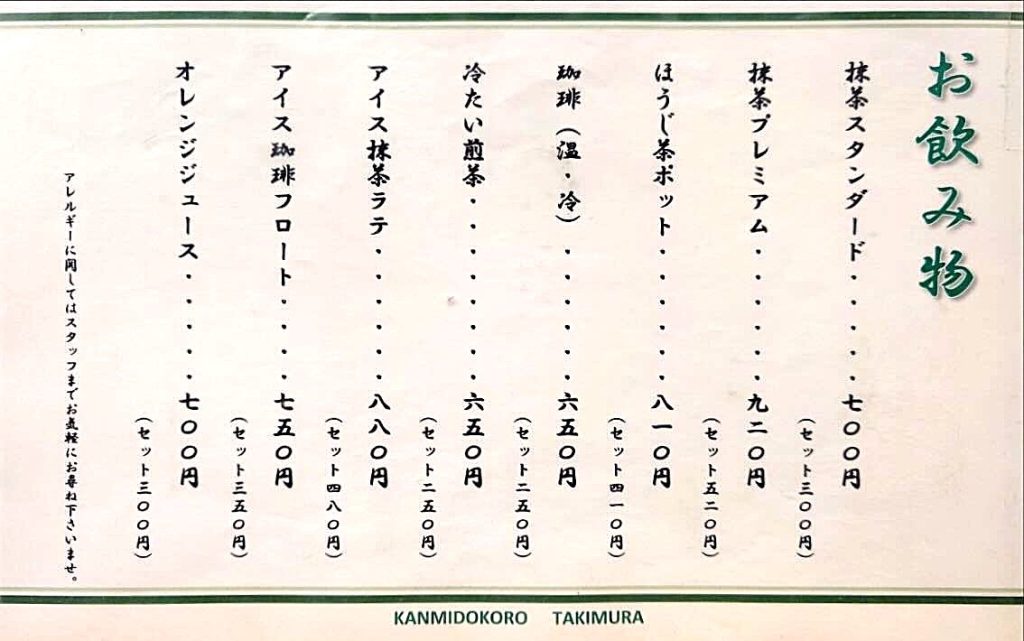 お飲み物
抹茶スタンダード・・・・・七〇〇円
（セット三〇〇円）
抹茶プレミアム・・・・・・九二〇円
（セット五二〇円）
ほうじ茶ポット・・・・・・八一〇円
（セット四一〇円）
珈琲（温・冷）・・・・・・六五〇円
（セット二五〇円）
冷たい煎茶・・・・・・・・六五〇円
（セット二五〇円）
アイス抹茶ラテ・・・・・・八八〇円
（セット四八〇円）
アイス珈琲フロート・・・・七五〇円
（セット三五〇円）
オレンジジュース・・・・・七〇〇円
（セット三〇〇円）
アレルギーに関してはスタッフまでお気軽にお尋ね下さいませ。
KANMIDOKORO TAKIMURA